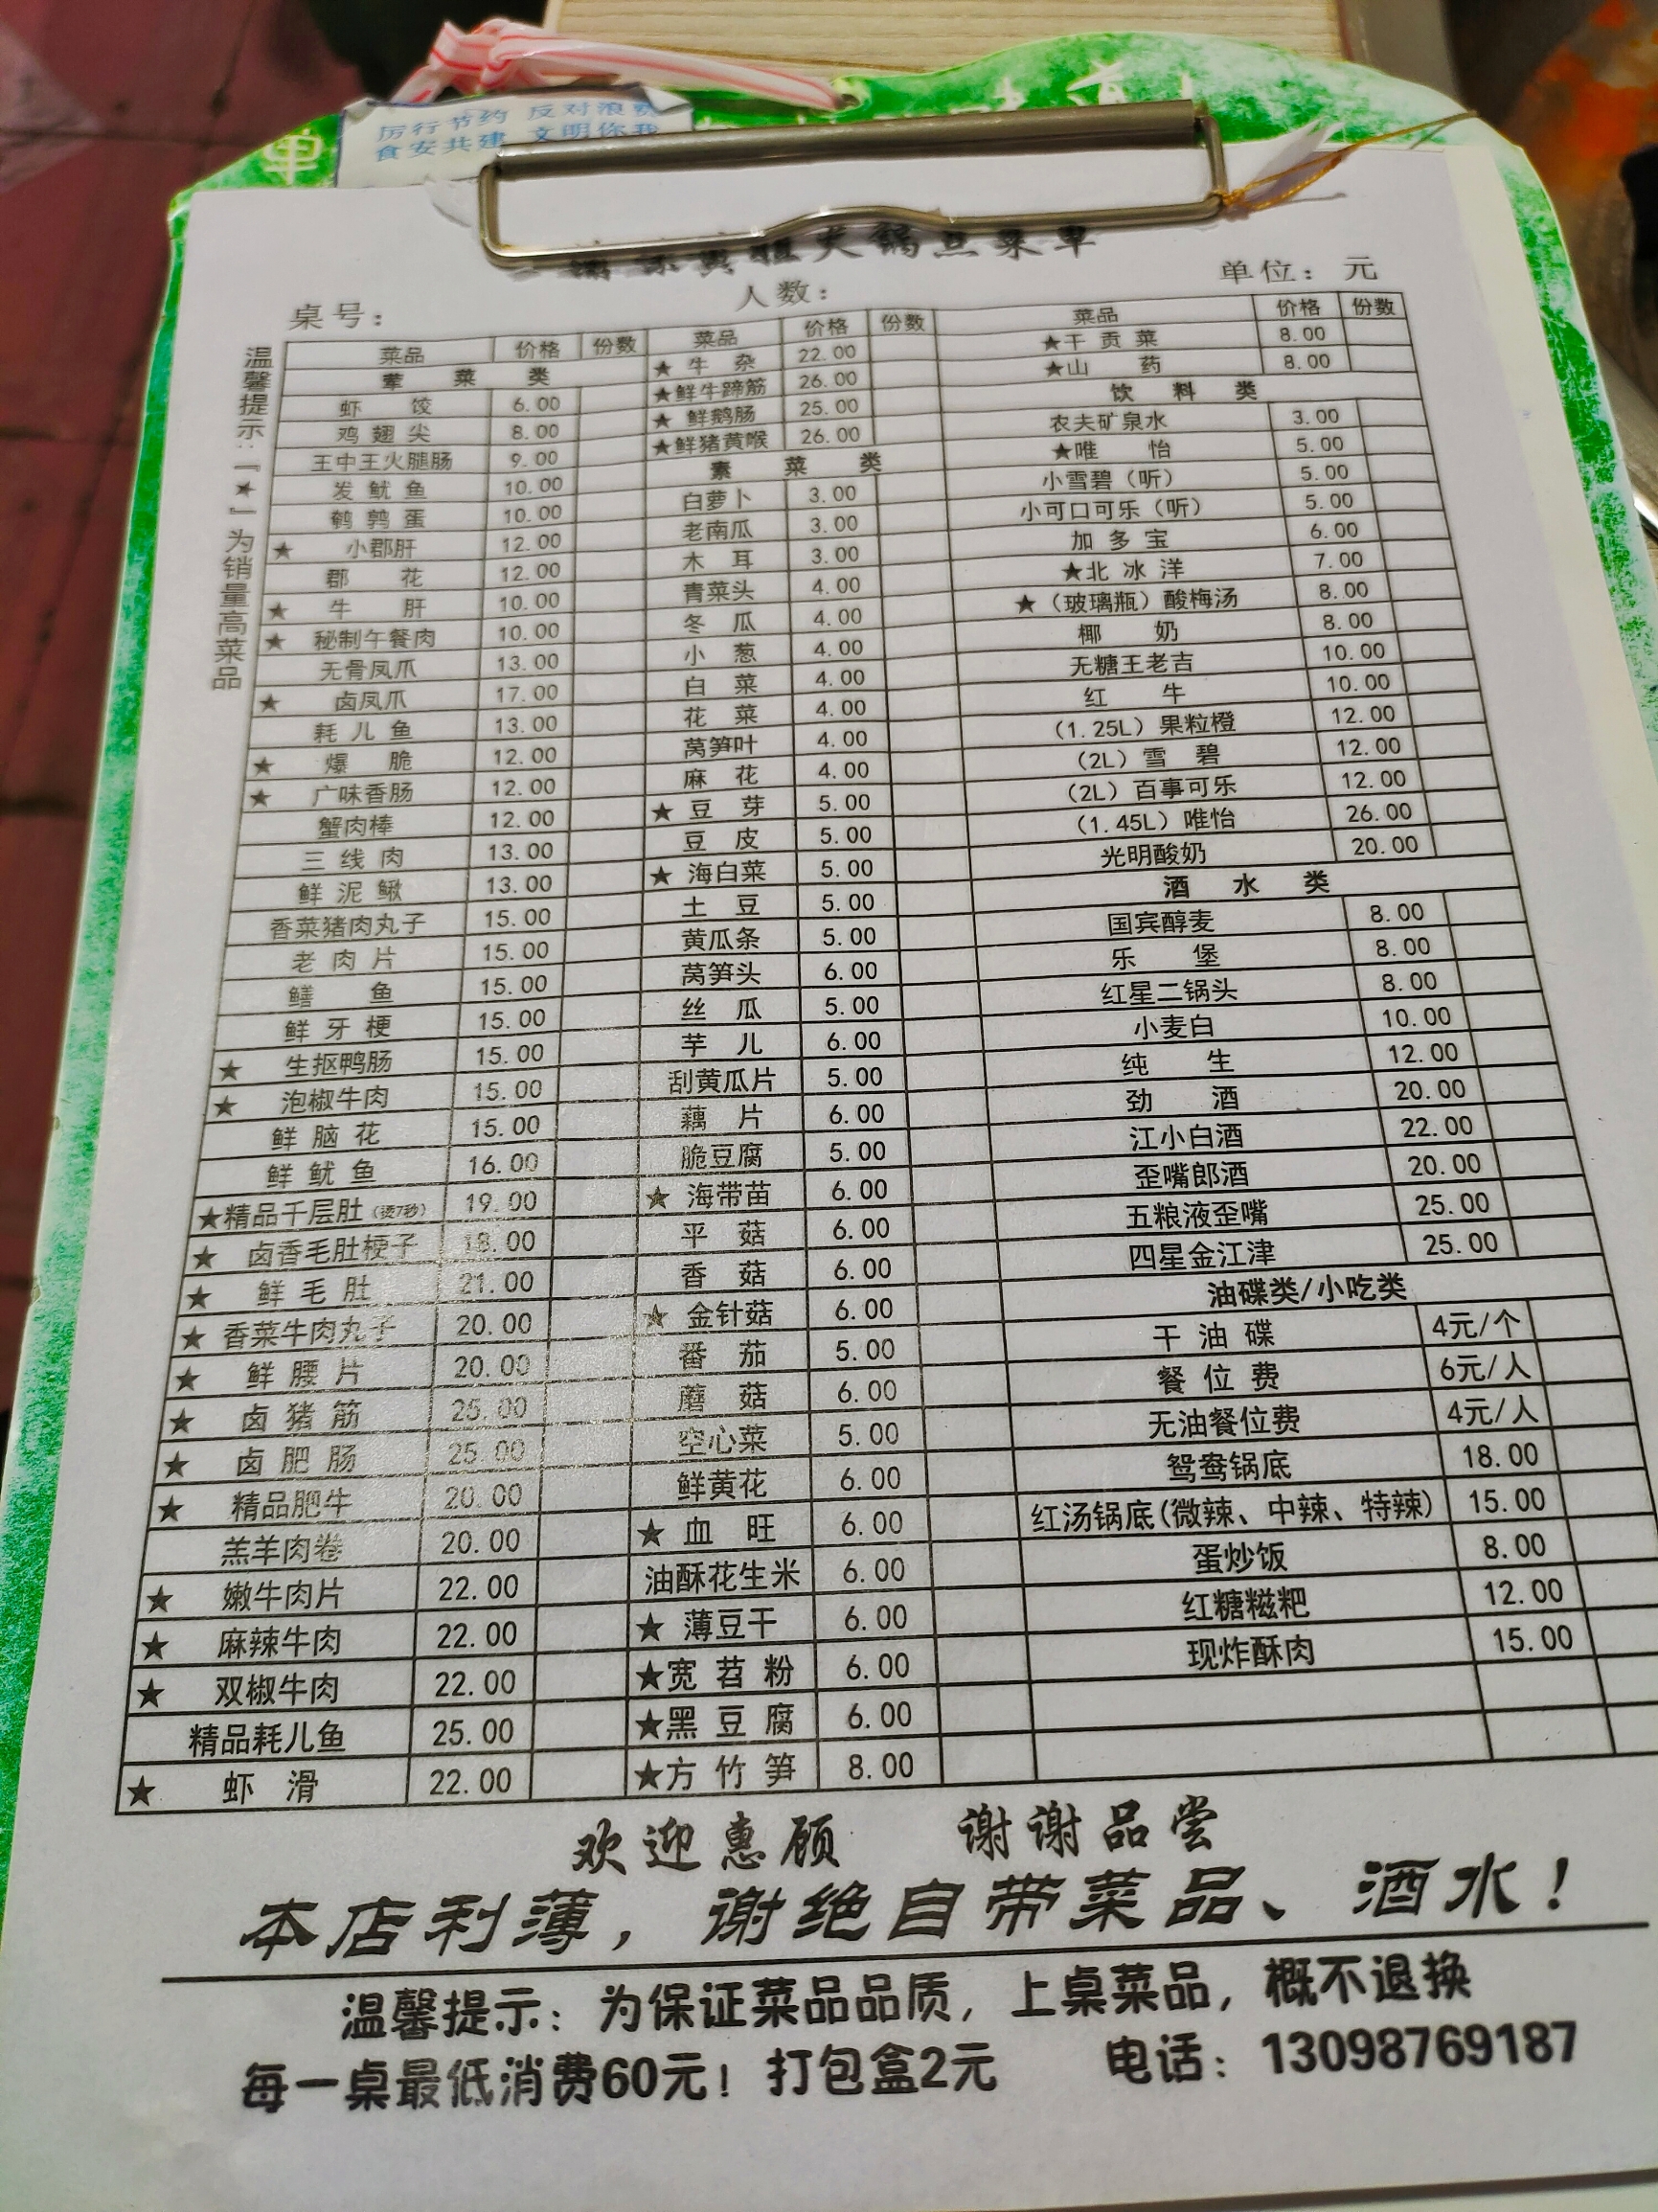 单
厉行节约 反对浪费
食安共建 文明你我
火锅点菜单
桌号： 人数： 单位：元
温馨提示：『★』为销量高菜品
菜品 价格 份数
荤菜类
虾饺 6.00
鸡翅尖 8.00
王中王火腿肠 9.00
发鱿鱼 10.00
鹌鹑蛋 10.00
★ 小郡肝 12.00
郡花 12.00
★ 牛肝 10.00
★ 秘制午餐肉 10.00
无骨凤爪 13.00
★ 卤凤爪 17.00
耗儿鱼 13.00
★ 爆脆 12.00
★ 广味香肠 12.00
蟹肉棒 12.00
三线肉 13.00
鲜泥鳅 13.00
香菜猪肉丸子 15.00
老肉片 15.00
鳝鱼 15.00
鲜牙梗 15.00
★ 生抠鸭肠 15.00
★ 泡椒牛肉 15.00
鲜脑花 15.00
鲜鱿鱼 16.00
★精品千层肚（烫7秒） 19.00
★ 卤香毛肚梗子 18.00
★ 鲜毛肚 21.00
★ 香菜牛肉丸子 20.00
★ 鲜腰片 20.00
★ 卤猪筋 25.00
★ 卤肥肠 25.00
★ 精品肥牛 20.00
羔羊肉卷 20.00
★ 嫩牛肉片 22.00
★ 麻辣牛肉 22.00
★ 双椒牛肉 22.00
精品耗儿鱼 25.00
★ 虾滑 22.00
菜品 价格 份数
★ 牛杂 22.00
★鲜牛蹄筋 26.00
★ 鲜鹅肠 25.00
★鲜猪黄喉 26.00
素菜类
白萝卜 3.00
老南瓜 3.00
木耳 3.00
青菜头 4.00
冬瓜 4.00
小葱 4.00
白菜 4.00
花菜 4.00
莴笋叶 4.00
麻花 4.00
★ 豆芽 5.00
豆皮 5.00
★ 海白菜 5.00
土豆 5.00
黄瓜条 5.00
莴笋头 6.00
丝瓜 5.00
芋儿 6.00
刮黄瓜片 5.00
藕片 6.00
脆豆腐 5.00
★ 海带苗 6.00
平菇 6.00
香菇 6.00
★ 金针菇 6.00
番茄 5.00
蘑菇 6.00
空心菜 5.00
鲜黄花 6.00
★ 血旺 6.00
油酥花生米 6.00
★ 薄豆干 6.00
★宽苕粉 6.00
★黑豆腐 6.00
★方竹笋 8.00
菜品 价格 份数
★干贡菜 8.00
★山药 8.00
饮料类
农夫矿泉水 3.00
★唯怡 5.00
小雪碧（听） 5.00
小可口可乐（听） 5.00
加多宝 6.00
★北冰洋 7.00
★（玻璃瓶）酸梅汤 8.00
椰奶 8.00
无糖王老吉 10.00
红牛 10.00
（1.25L）果粒橙 12.00
（2L）雪碧 12.00
（2L）百事可乐 12.00
（1.45L）唯怡 26.00
光明酸奶 20.00
酒水类
国宾醇麦 8.00
乐堡 8.00
红星二锅头 8.00
小麦白 10.00
纯生 12.00
劲酒 20.00
江小白酒 22.00
歪嘴郎酒 20.00
五粮液歪嘴 25.00
四星金江津 25.00
油碟类/小吃类
干油碟 4元/个
餐位费 6元/人
无油餐位费 4元/人
鸳鸯锅底 18.00
红汤锅底（微辣、中辣、特辣） 15.00
蛋炒饭 8.00
红糖糍粑 12.00
现炸酥肉 15.00
欢迎惠顾 谢谢品尝
本店利薄，谢绝自带菜品、酒水！
温馨提示：为保证菜品品质，上桌菜品，概不退换
每一桌最低消费60元！打包盒2元 电话：13098769187